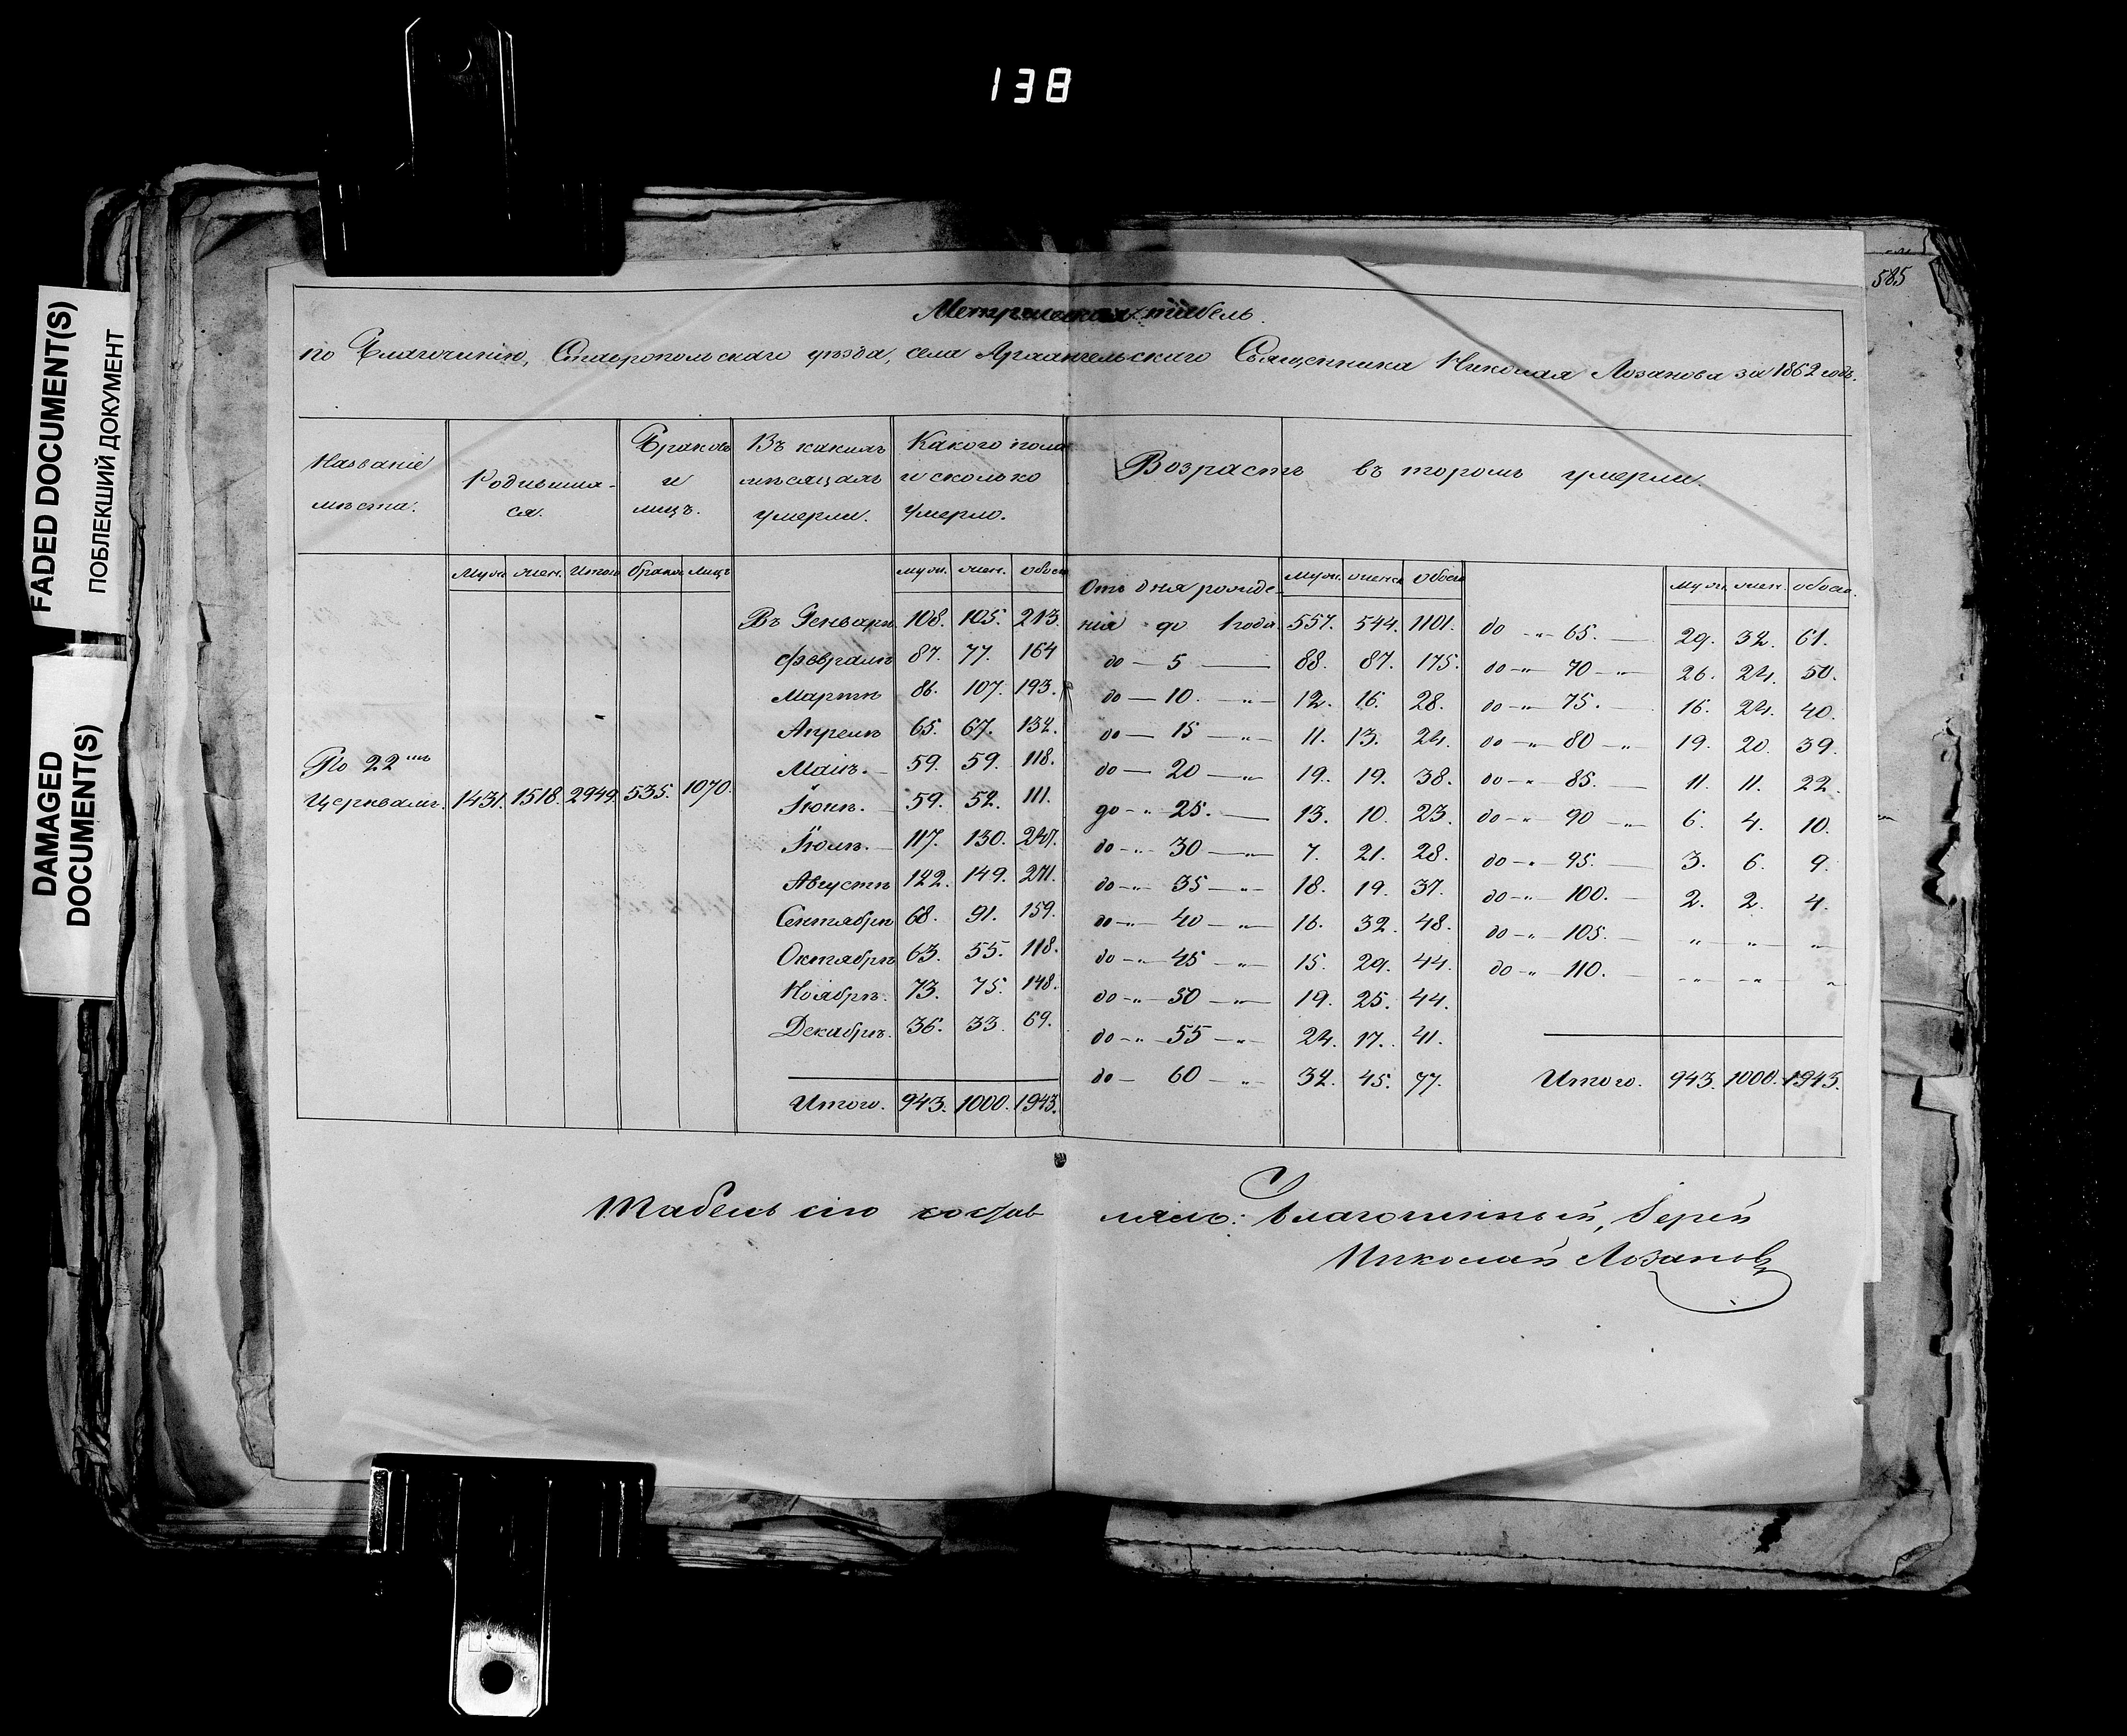 138
585
FADED DOCUMENT(S)
ПОБЛЕКШИЙ ДОКУМЕНТ
DAMAGED
DOCUMENT(S)
Метрическая табель
по Благочинію, Ставропольскаго уѣзда, села Архангельскаго Священника Николая Лозанова за 1862 годъ.
Названіе мѣста. Родившихся. Браковъ и лицъ. Въ какихъ мѣсяцахъ умерли. Какого пола и сколько умерло. Возрастъ въ торомъ умерли.
Муж. жен. Итого браков лицъ муж. жен. обоего Отъ дня рожде- муж. женск обоего муж. жен. обоего.
Въ Генварѣ 108. 105. 213. нія до 1 года 557. 544. 1101. до -„- 65. 29. 32. 61.
Февралѣ 87. 77. 164 до — 5 88. 87. 175. до -„- 70 -„- 26. 24. 50.
Мартѣ 86. 107. 193. до — 10. -„- 12. 16. 28. до -„- 75. 16. 24. 40.
Апрелѣ 65. 67. 132. до — 15 -„- 11. 13. 24. до -„- 80 -„- 19. 20. 39.
Маіѣ. 59. 59. 118. до — 20 -„- 19. 19. 38. до -„- 85. 11. 11. 22.
По 22мъ Церквамъ. 1431. 1518. 2949. 535. 1070. Іюнѣ. 59. 52. 111. до -„- 25. 13. 10. 23. до -„- 90 -„- 6. 4. 10.
Іюлѣ. 117. 130. 247. до -„- 30 -„- 7. 21. 28. до -„- 95. 3. 6. 9.
Августѣ 122. 149. 271. до -„- 35 -„- 18. 19. 37. до -„- 100. 2. 2. 4.
Сентябрѣ 68. 91. 159. до -„- 40 -„- 16. 32. 48. до -„- 105. „ „ „
Октябрѣ 63. 55. 118. до -„- 45 -„- 15. 29. 44. до -„- 110. „ „ „
Ноябрѣ. 73. 75. 148. до -„- 50 -„- 19. 25. 44.
Декабрѣ. 36. 33. 69. до -„- 55 -„- 24. 17. 41.
до — 60 -„- 32. 45. 77. Итого. 943. 1000. 1943.
Итого. 943. 1000. 1943.
Табель сію составлялъ: Благочинный, Іерей
Николай Лозановъ